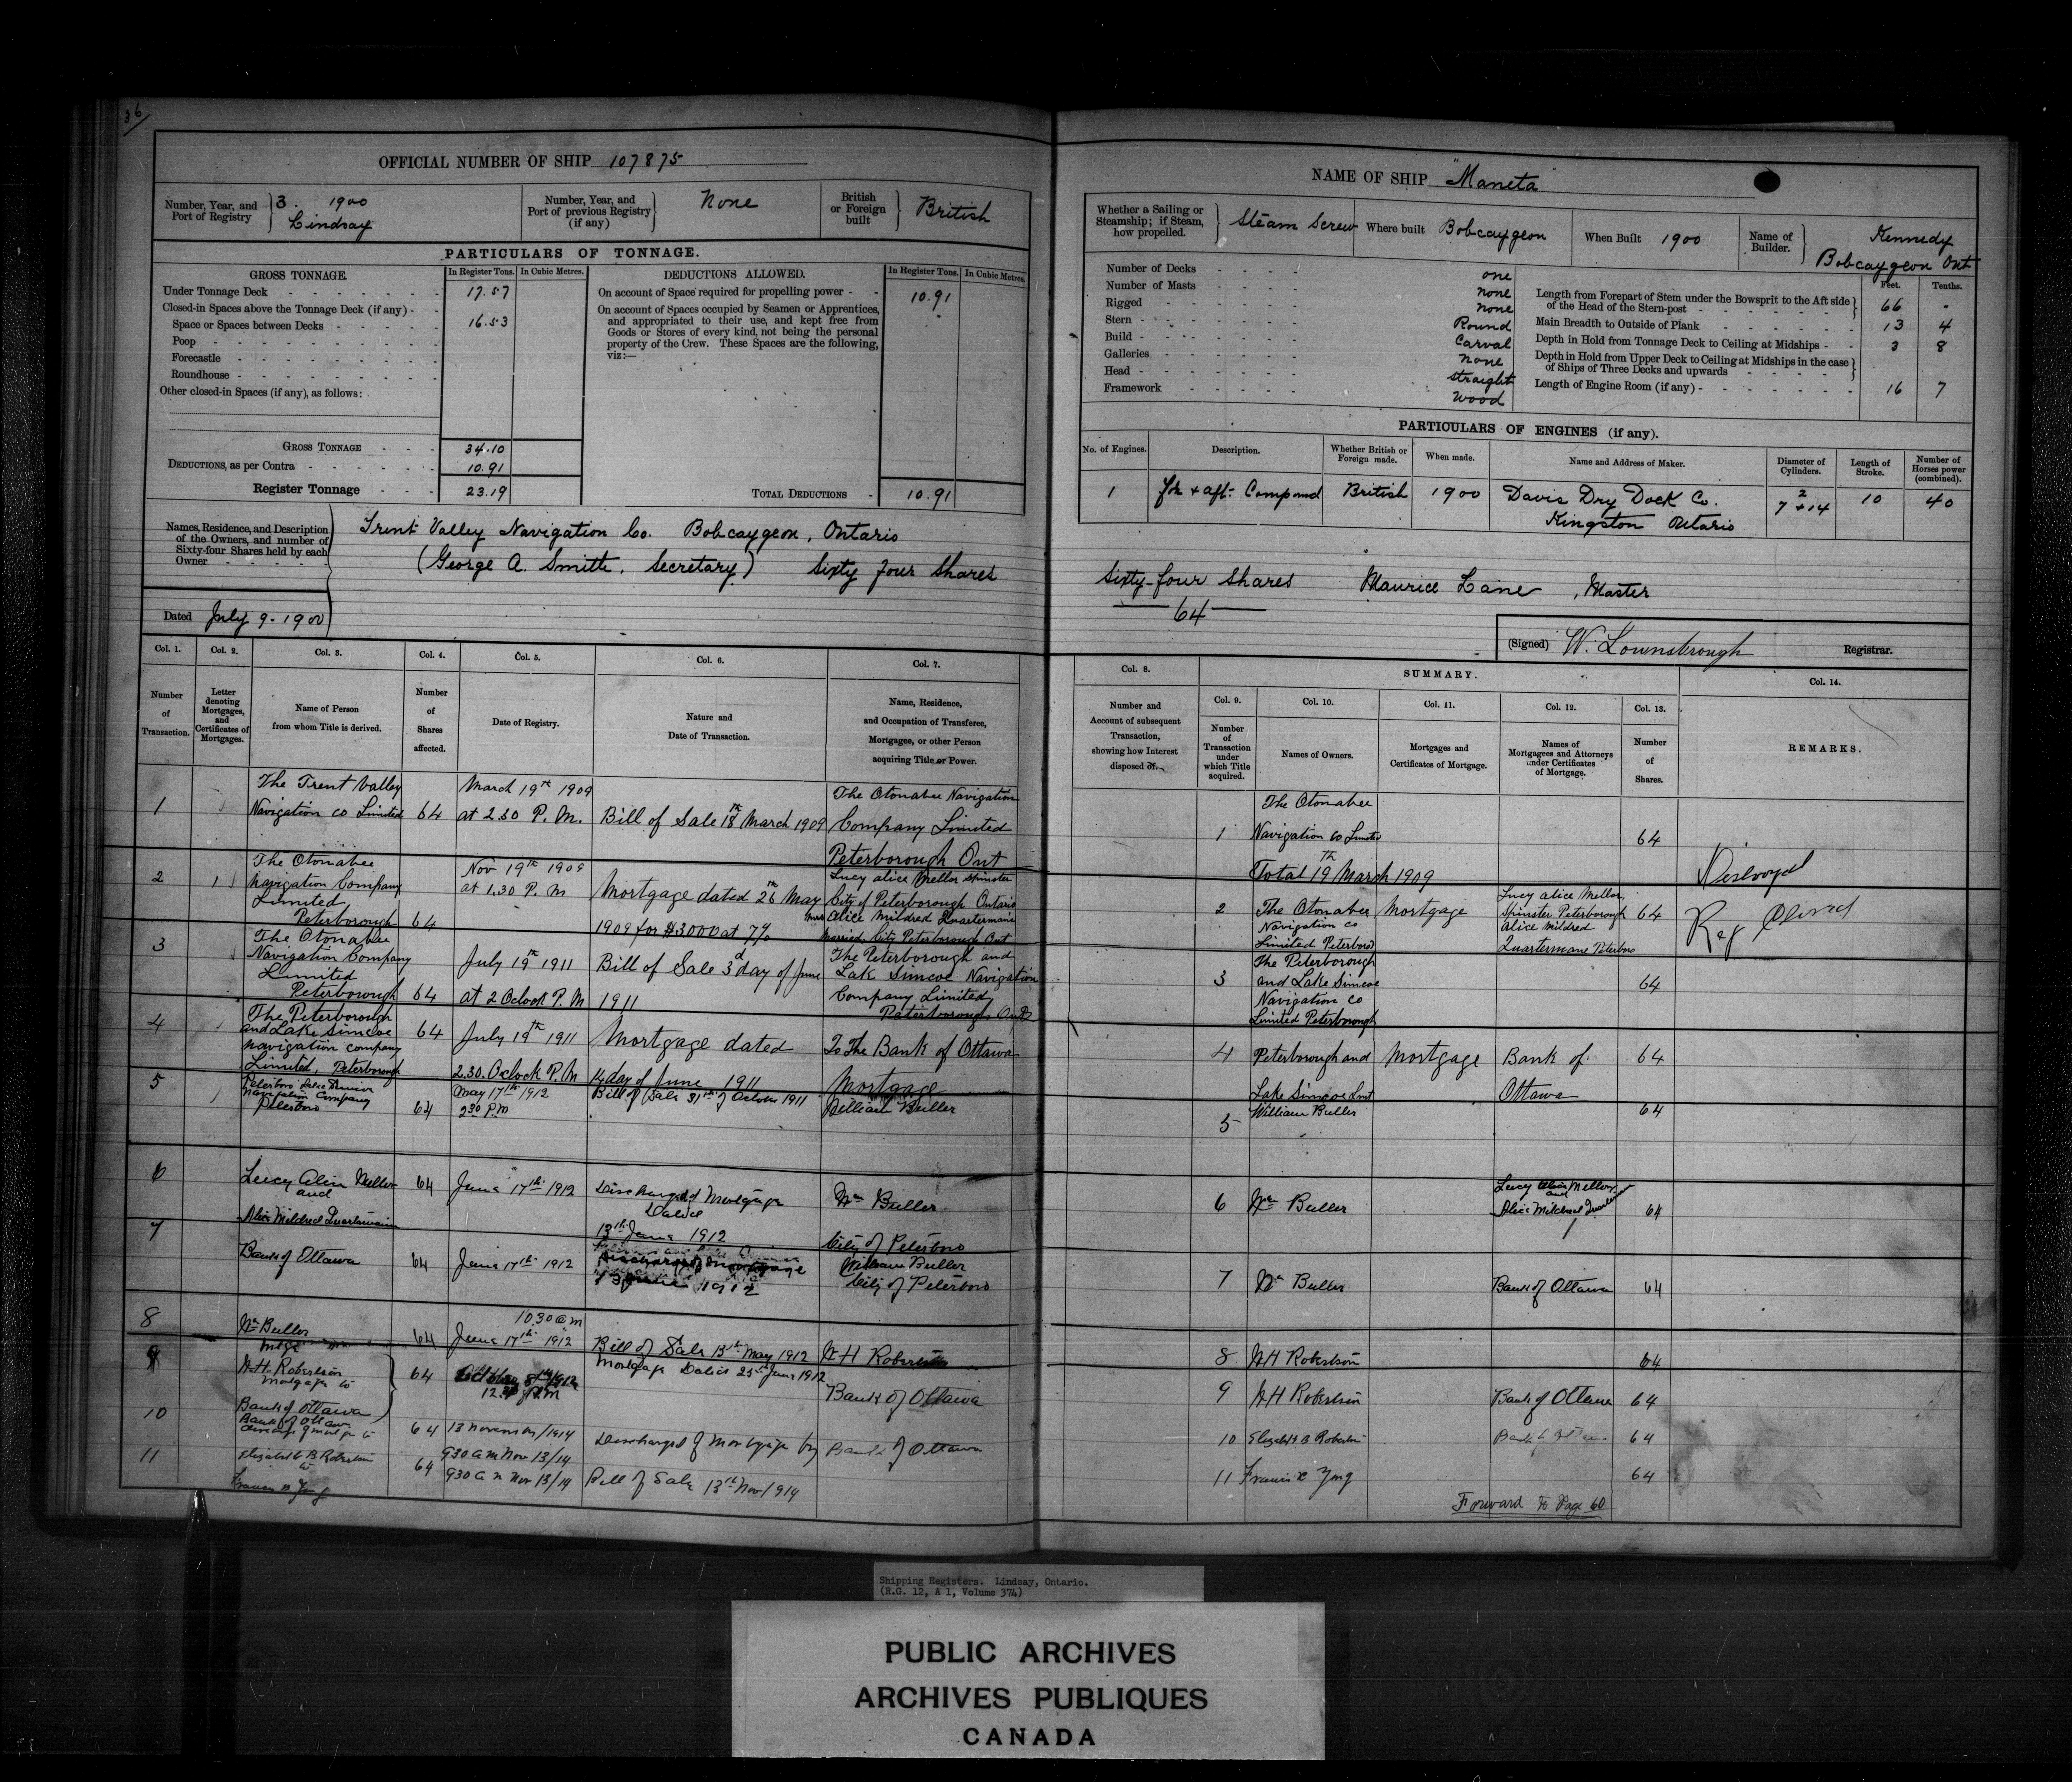 36
OFFICIAL NUMBER OF SHIP 107875
Number, Year, and Port of Registry 3. 1900 Lindsay
Number, Year, and Port of previous Registry (if any) None
British or Foreign built British
PARTICULARS OF TONNAGE.
GROSS TONNAGE. In Register Tons. In Cubic Metres.
Under Tonnage Deck 17.57
Closed-in Spaces above the Tonnage Deck (if any)
Space or Spaces between Decks 16.53
Poop
Forecastle
Roundhouse
Other closed-in Spaces (if any), as follows:
GROSS TONNAGE 34.10
DEDUCTIONS, as per Contra 10.91
Register Tonnage 23.19
DEDUCTIONS ALLOWED. In Register Tons. In Cubic Metres.
On account of Space required for propelling power 10.91
On account of Spaces occupied by Seamen or Apprentices,
and appropriated to their use, and kept free from
Goods or Stores of every kind, not being the personal
property of the Crew. These Spaces are the following,
viz:—
TOTAL DEDUCTIONS 10.91
Names, Residence, and Description
of the Owners, and number of
Sixty-four Shares held by each
Owner
Trent Valley Navigation Co. Bobcaygeon, Ontario
(George A. Smith, Secretary) Sixty four Shares
Dated July 9-1900
NAME OF SHIP "Maneta"
Whether a Sailing or Steamship; if Steam, how propelled. Steam Screw
Where built Bobcaygeon
When Built 1900
Name of Builder. Kennedy Bobcaygeon Ont
Number of Decks one
Number of Masts none
Rigged none
Stern Round
Build Carval
Galleries none
Head straight
Framework wood
Feet. Tenths.
Length from Forepart of Stem under the Bowsprit to the Aft side of the Head of the Stern-post 66 -
Main Breadth to Outside of Plank 13 4
Depth in Hold from Tonnage Deck to Ceiling at Midships 3 8
Depth in Hold from Upper Deck to Ceiling at Midships in the case of Ships of Three Decks and upwards
Length of Engine Room (if any) 16 7
PARTICULARS OF ENGINES (if any).
No. of Engines. Description. Whether British or Foreign made. When made. Name and Address of Maker. Diameter of Cylinders. Length of Stroke. Number of Horses power (combined).
1 for + aft Compound British 1900 Davis Dry Dock Co. Kingston Ontario 2 7 + 14 10 40
Sixty-four Shares Maurice Lane, Master
64
(Signed) W. Lownsbrough Registrar.
Col. 1. Col. 2. Col. 3. Col. 4. Col. 5. Col. 6. Col. 7.
Number of Transaction.
Letter denoting Mortgages, and Certificates of Mortgages.
Name of Person from whom Title is derived.
Number of Shares affected.
Date of Registry.
Nature and Date of Transaction.
Name, Residence, and Occupation of Transferee, Mortgagee, or other Person acquiring Title or Power.
1 The Trent Valley Navigation Co Limited 64 March 19th 1909 at 2.30 P.M. Bill of Sale 18th March 1909 The Otonabee Navigation Company Limited Peterborough Ont
2 1 The Otonabee Navigation Company Limited Peterborough 64 Nov 19th 1909 at 1.30 P.M Mortgage dated 26th May 1909 for $3000 at 7% Lucy Alice Mellor Spinster City of Peterborough Ontario Mrs Alice Mildred Quartermaine Married City Peterborough Ont
3 The Otonabee Navigation Company Limited Peterborough 64 July 19th 1911 at 2 Oclock P.M Bill of Sale 3d day of June 1911 The Peterborough and Lak Simcoe Navigation Company Limited Peterborough Ont
4 The Peterborough and Lake Simcoe Navigation Company Limited, Peterborough 64 July 19th 1911 2.30. Oclock P.M Mortgage dated 14 day of June 1911 To The Bank of Ottawa Mortgage
5 Peterboro Lake Simcoe Navigation Company Peterboro 64 May 17th 1912 2.30 P.M Bill of Sale 31st of October 1911 William Buller
6 Lucy Alice Mellor and Alice Mildred Quartermain 64 June 17th 1912 Discharged Mortgage Dated 13th June 1912 Wm Buller City of Peterboro
7 Bank of Ottawa 64 June 17th 1912 Discharge of Mortgage 13 June 1912 William Buller City of Peterboro
8 Wm Buller 64 10.30 a m June 17th 1912 Bill of Sale 13th May 1912 W H Robertson
9 W.H. Robertson Mortgage to Bank of Ottawa 64 Mortgage Dated 25th June 1912 Bank of Ottawa
10 Bank of Ottawa 64 13 November/1914 9.30 a m Nov 13/14 Discharged of Mortgage by Bank of Ottawa
11 Elizabeth B Robertson to 64 9.30 a m Nov 13/14 Bill of Sale 13th Nov/1914
Col. 8. SUMMARY. Col. 9. Col. 10. Col. 11. Col. 12. Col. 13. Col. 14.
Number and Account of subsequent Transaction, showing how Interest disposed of.
Number of Transaction under which Title acquired.
Names of Owners.
Mortgages and Certificates of Mortgage.
Names of Mortgagees and Attorneys under Certificates of Mortgage.
Number of Shares.
REMARKS.
1 The Otonabee Navigation Co Limited 64
Total 19th March 1909
2 The Otonabee Navigation Co Limited Peterboro Mortgage Lucy Alice Mellor, Spinster Peterborough Alice Mildred Quartermane Peterboro 64
Destroyed
Reg Closed
3 The Peterborough and Lake Simcoe Navigation Co Limited Peterborough 64
4 Peterborough and Lake Simcoe Lmt Mortgage Bank of Ottawa 64
5 William Buller 64
6 Wm Buller Lucy Alice Mellor and Alice Mildred 64
7 Wm Buller Bank of Ottawa 64
8 W H Robertson 64
9 W H Robertson Bank of Ottawa 64
10 Elizabeth B Robertson Bank of Ottawa 64
11 64
Forward to Page 60
Shipping Registers. Lindsay, Ontario.
(R.G. 12, A 1, Volume 374)
PUBLIC ARCHIVES
ARCHIVES PUBLIQUES
CANADA